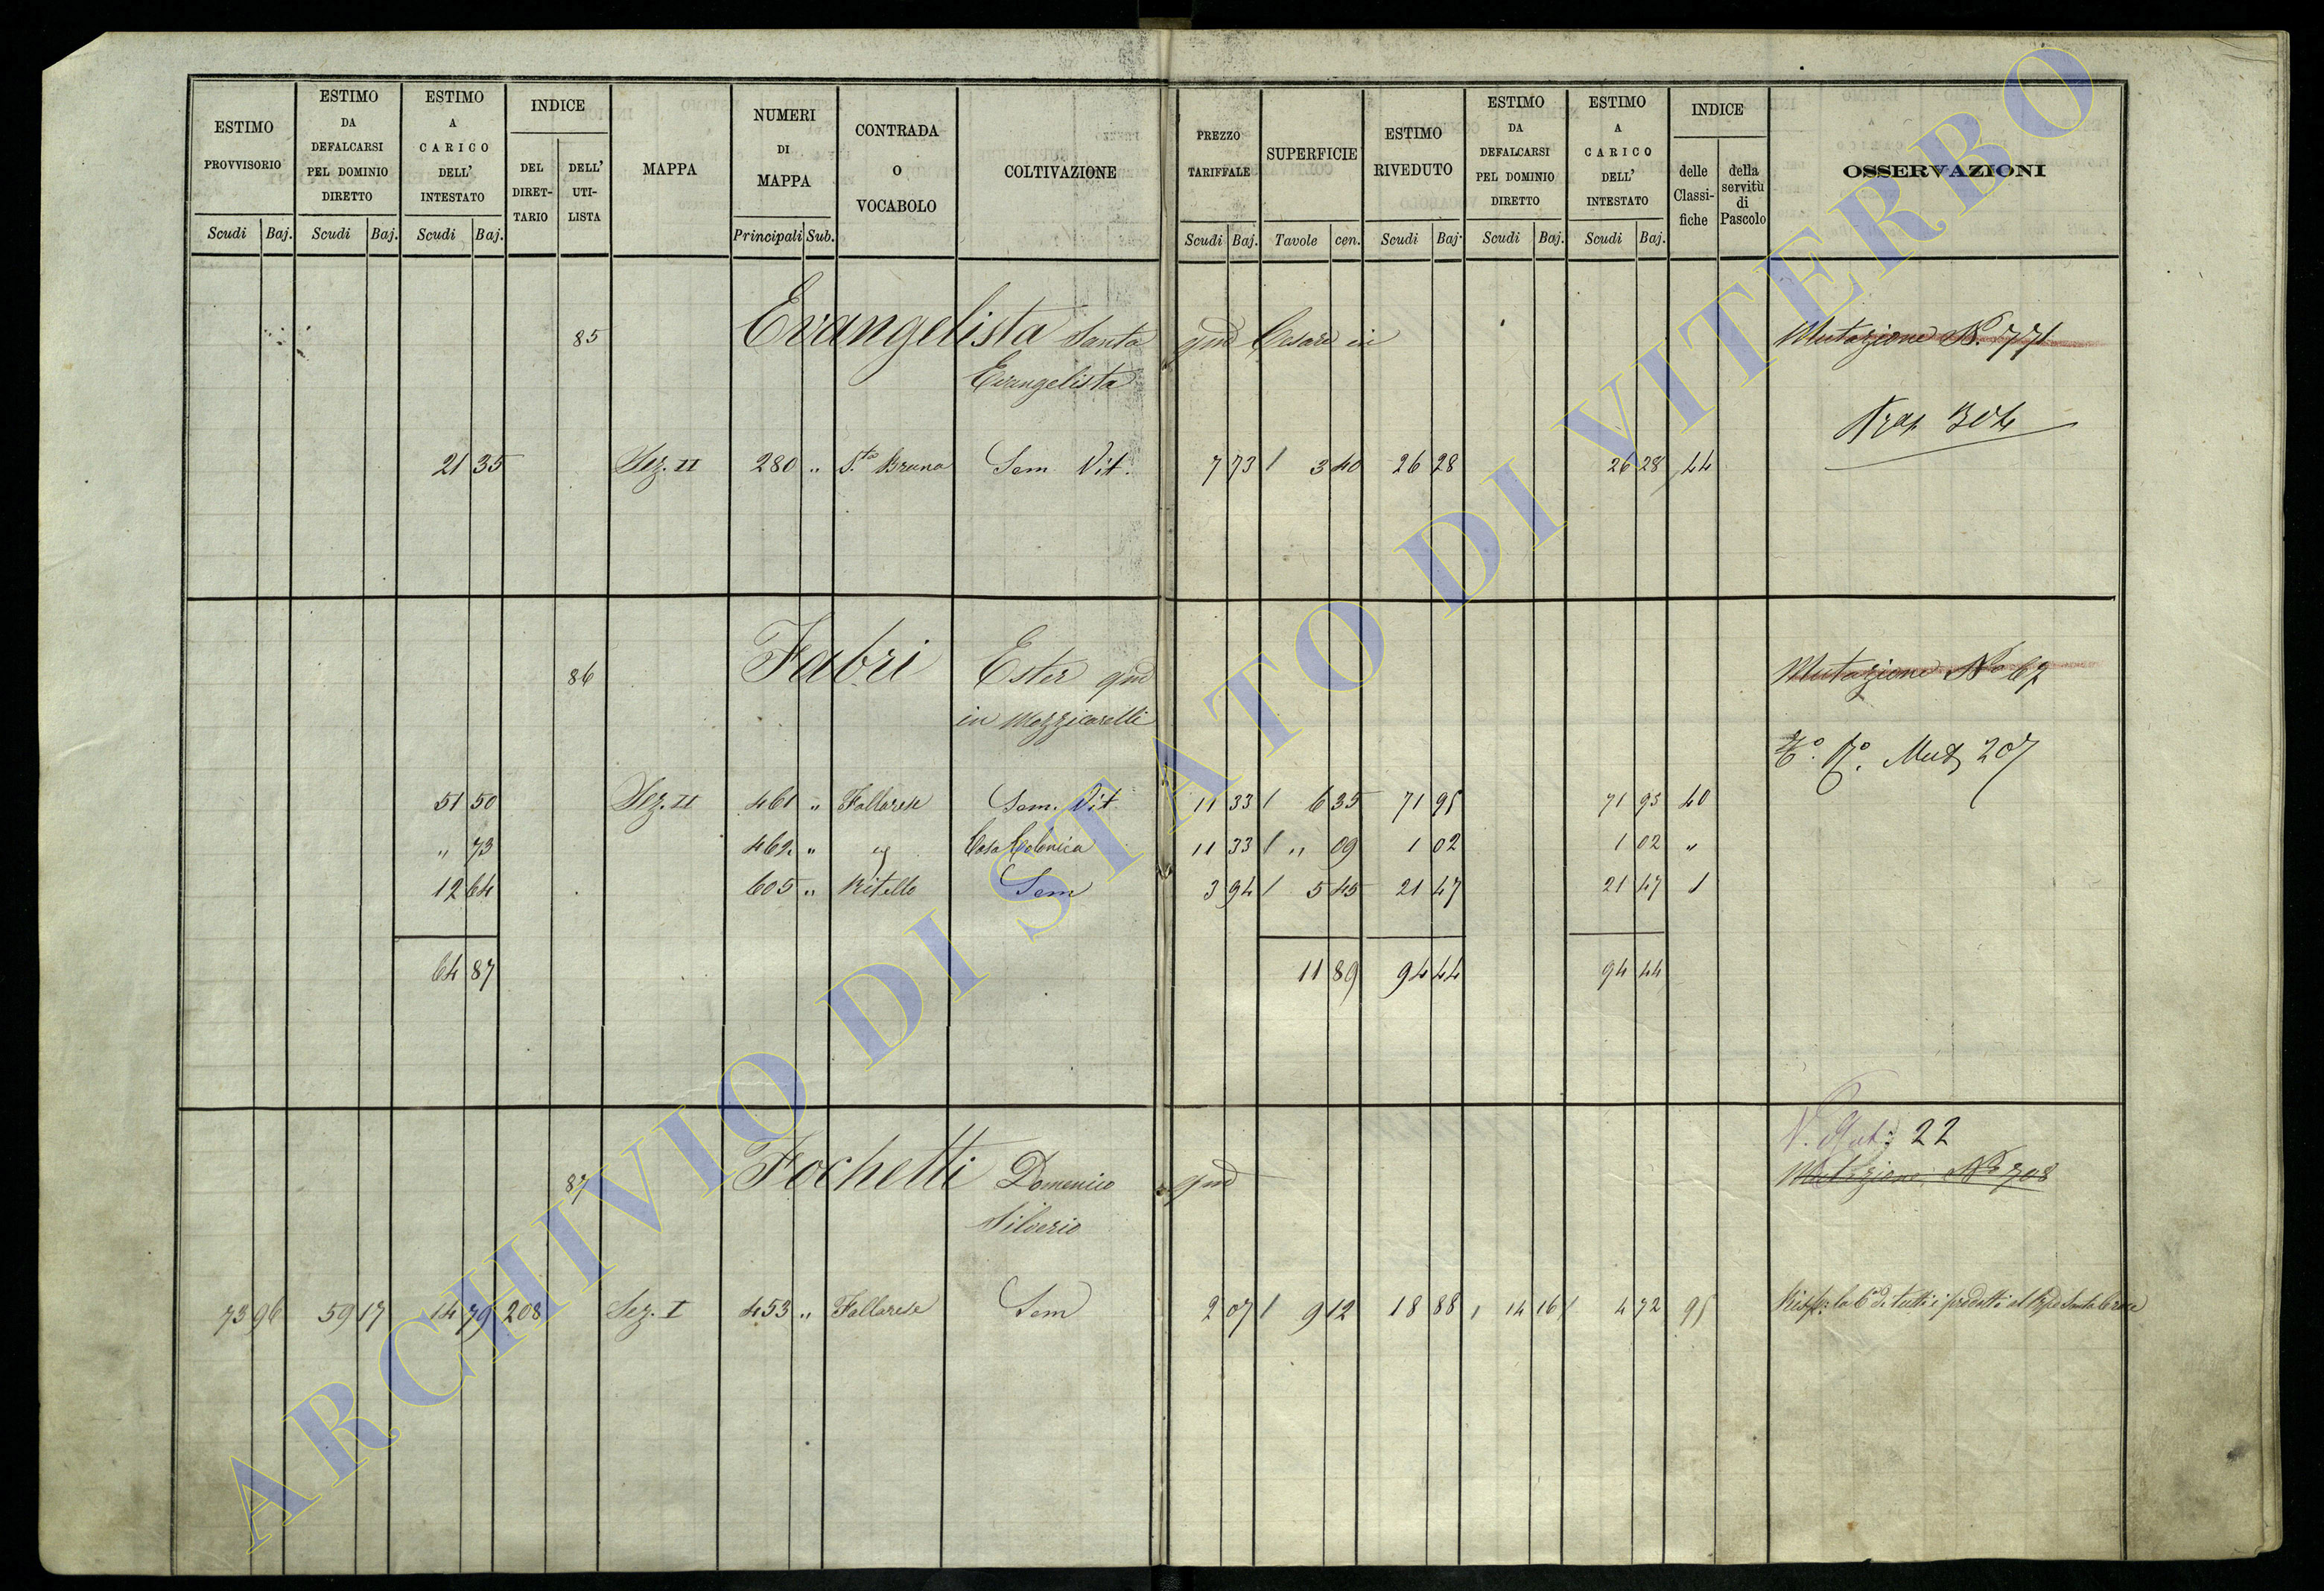 ESTIMO PROVVISORIO
ESTIMO DA DEFALCARSI PEL DOMINIO DIRETTO
ESTIMO A CARICO DELL' INTESTATO
INDICE
DEL DIRET-TARIO
DELL' UTI-LISTA
MAPPA
NUMERI DI MAPPA
CONTRADA O VOCABOLO
COLTIVAZIONE
PREZZO TARIFFALE
SUPERFICIE
ESTIMO RIVEDUTO
ESTIMO DA DEFALCARSI PEL DOMINIO DIRETTO
ESTIMO A CARICO DELL' INTESTATO
INDICE
delle Classi-fiche
della servitù di Pascolo
OSSERVAZIONI
Scudi Baj. Scudi Baj. Scudi Baj. Principali Sub. Scudi Baj. Tavole cen. Scudi Baj. Scudi Baj. Scudi Baj.
85 Evangelista Santa qm Cesare in Mutazione N. 771
Evangelista
304
21 35 Sez. II 280 " S.ta Bruna Sem. Vit. 7 73 / 3 40 26 28 26 28 44
86 Fabri Ester qm Mutazione No 62
in Mezzicarelli
Mut 207
51 50 Sez. II 461 " Fallarese Sem. Vit. 11 33 / 6 35 71 95 71 95 40
" 73 462 " Casa Colonica 11 33 / " 09 1 02 1 02 "
12 64 605 " Ritello Sem 3 94 / 5 45 21 47 21 47 1
64 87 11 89 94 44 94 44
22
87 Fochetti Domenico qm Mutazione No 708
Silverio
73 96 59 17 14 79 208 Sez. I 453 " Fallarese Sem 2 07 / 9 12 18 88 14 16 4 72 95 Risp: la 6a di tutti i prodotti al Santa Croce
ARCHIVIO DI STATO DI VITERBO